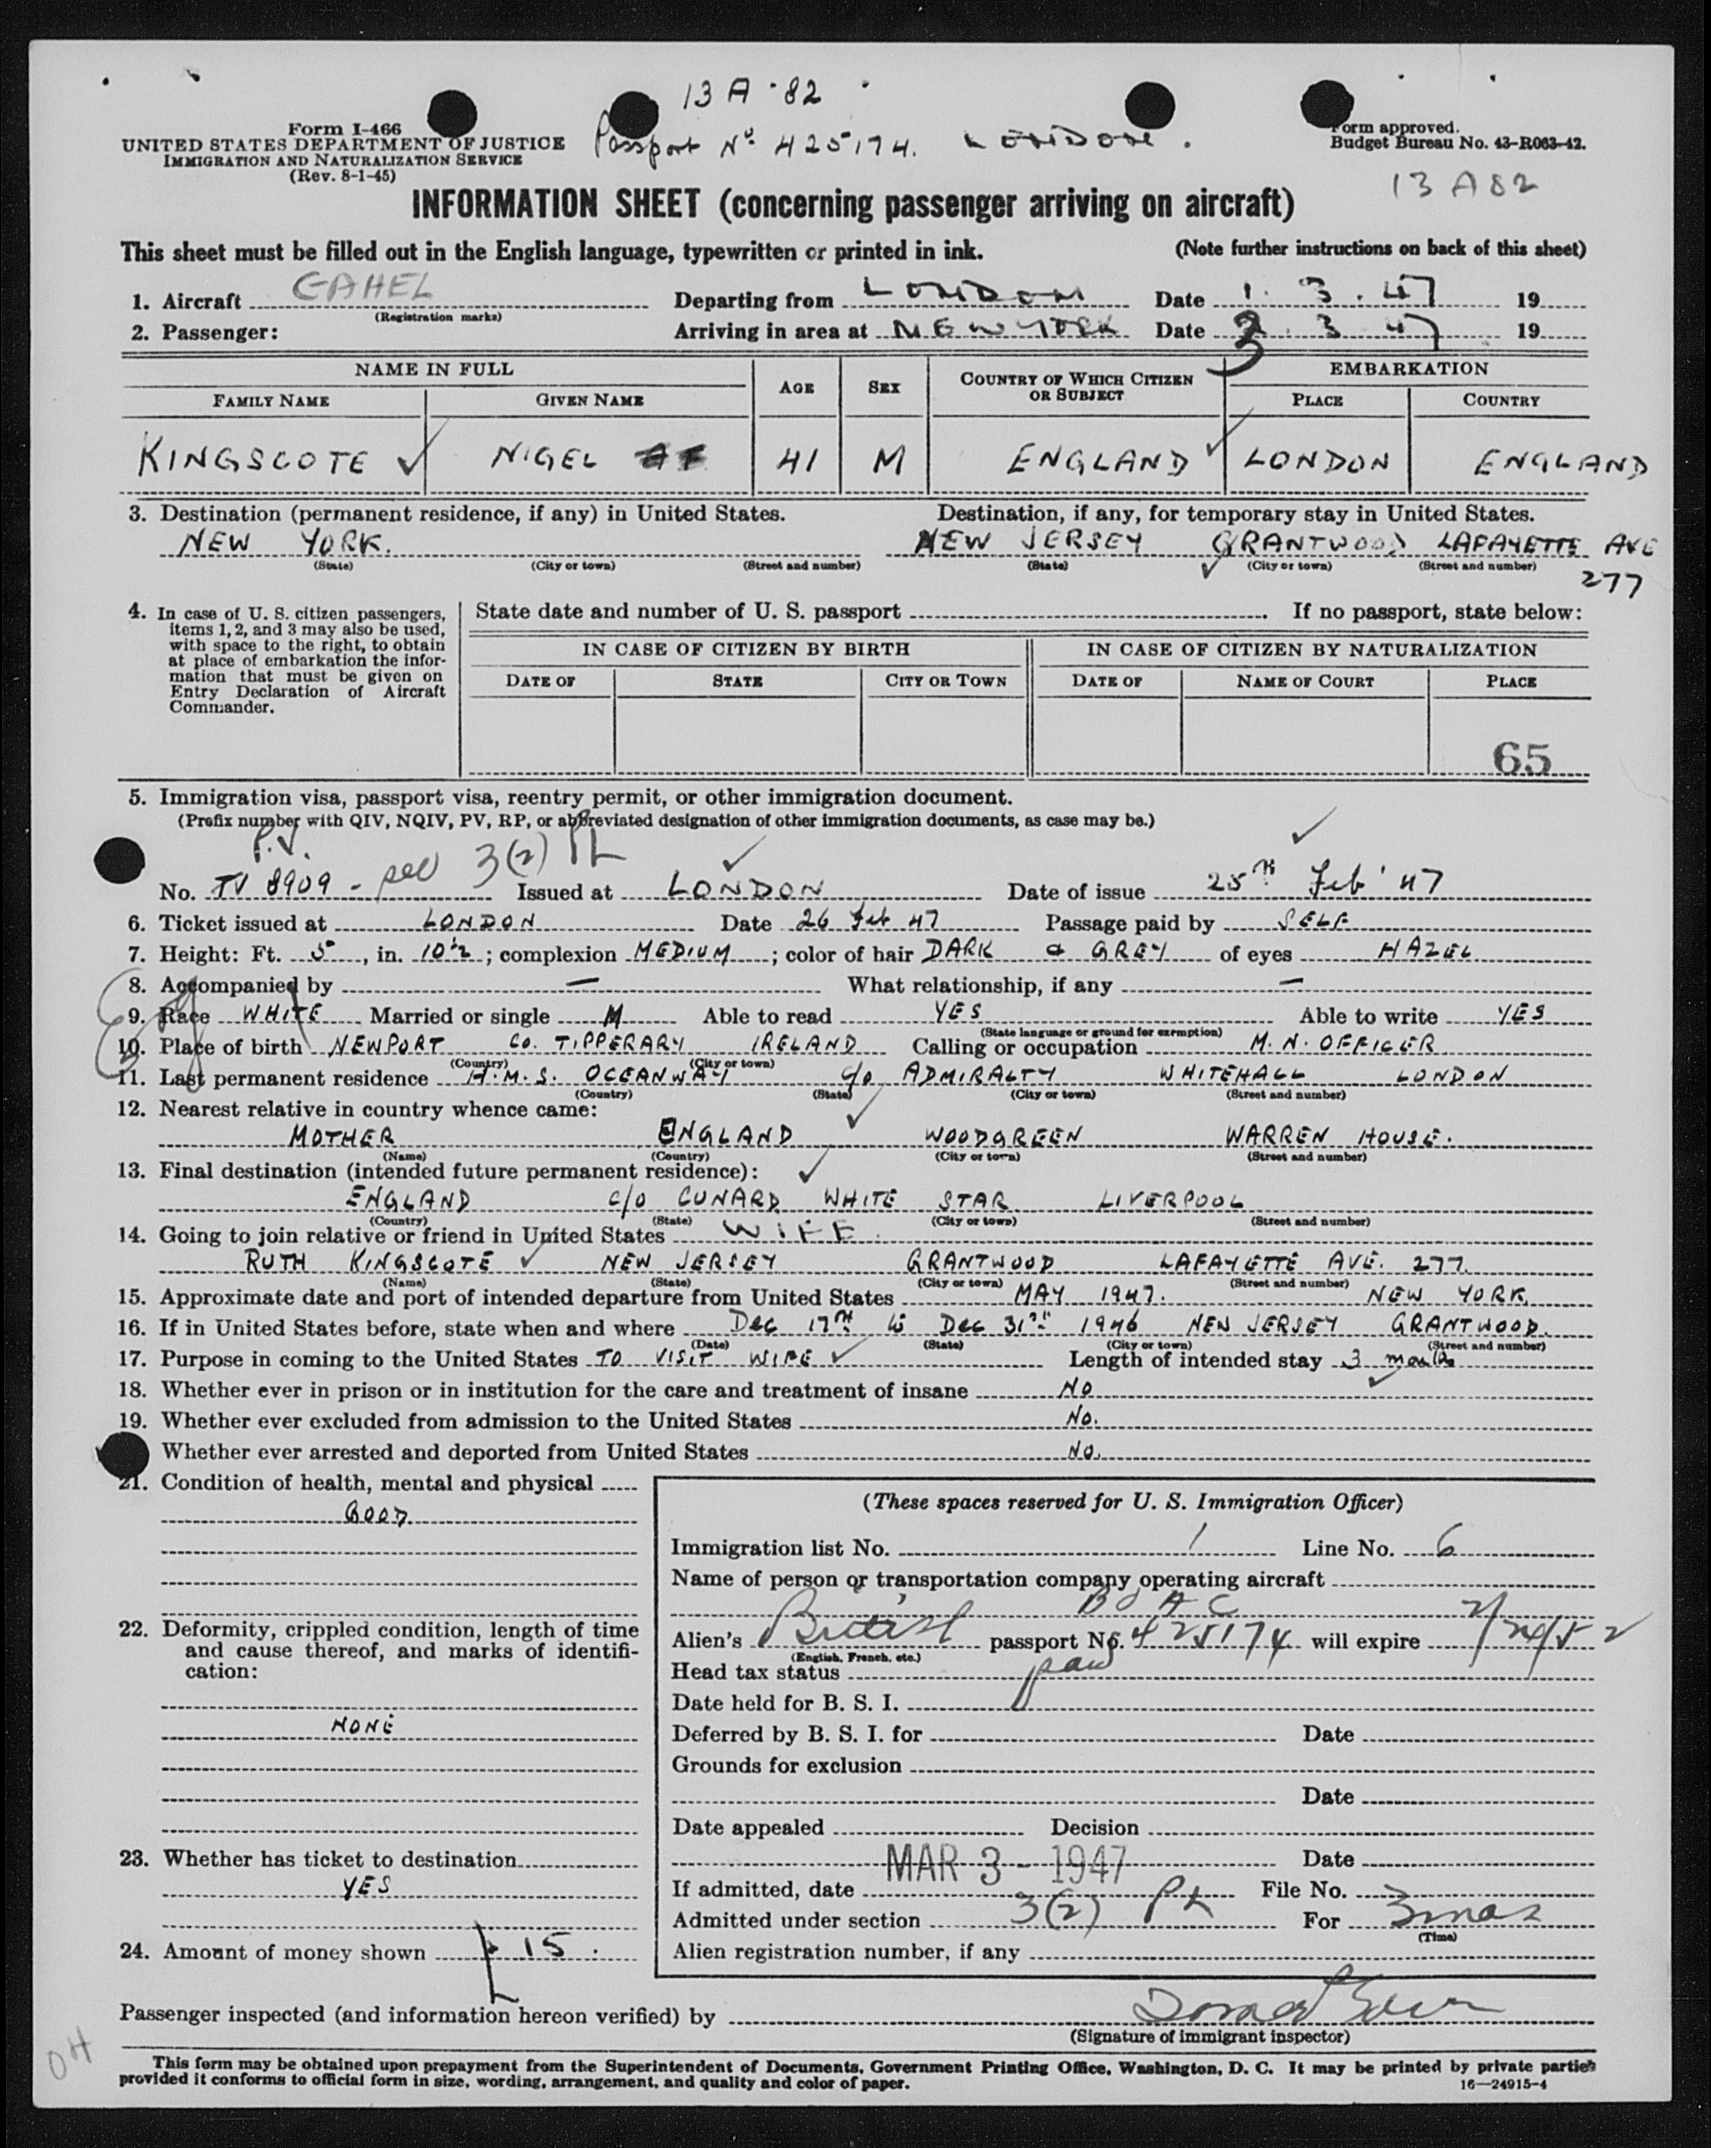 13 A · 82
Form I-466
UNITED STATES DEPARTMENT OF JUSTICE
IMMIGRATION AND NATURALIZATION SERVICE
(Rev. 8-1-45)
Passport No. 425174. LONDON.
Form approved.
Budget Bureau No. 43-R063-42.
13 A 82
INFORMATION SHEET (concerning passenger arriving on aircraft)
This sheet must be filled out in the English language, typewritten or printed in ink. (Note further instructions on back of this sheet)
1. Aircraft GAHEL Departing from LONDON Date 1. 3. 47 19
(Registration marks)
2. Passenger: Arriving in area at NEW YORK Date 3. 3. 47 19
NAME IN FULL AGE SEX COUNTRY OF WHICH CITIZEN OR SUBJECT EMBARKATION
FAMILY NAME GIVEN NAME PLACE COUNTRY
KINGSCOTE NIGEL 41 M ENGLAND LONDON ENGLAND
3. Destination (permanent residence, if any) in United States. Destination, if any, for temporary stay in United States.
NEW YORK. NEW JERSEY GRANTWOOD LAFAYETTE AVE
(State) (City or town) (Street and number) (State) (City or town) (Street and number) 277
4. In case of U. S. citizen passengers, items 1, 2, and 3 may also be used, with space to the right, to obtain at place of embarkation the information that must be given on Entry Declaration of Aircraft Commander.
State date and number of U. S. passport If no passport, state below:
IN CASE OF CITIZEN BY BIRTH IN CASE OF CITIZEN BY NATURALIZATION
DATE OF STATE CITY OR TOWN DATE OF NAME OF COURT PLACE
65
5. Immigration visa, passport visa, reentry permit, or other immigration document.
(Prefix number with QIV, NQIV, PV, RP, or abbreviated designation of other immigration documents, as case may be.)
P.V.
No. TV 8909 - sec 3(2) PL Issued at LONDON Date of issue 25th Feb '47
6. Ticket issued at LONDON Date 26 Feb 47 Passage paid by SELF
7. Height: Ft. 5, in. 10½; complexion MEDIUM; color of hair DARK & GREY of eyes HAZEL
8. Accompanied by — What relationship, if any —
9. Race WHITE Married or single M Able to read YES Able to write YES
(State language or ground for exemption)
10. Place of birth NEWPORT CO. TIPPERARY IRELAND Calling or occupation M.N. OFFICER
(Country) (City or town)
11. Last permanent residence H.M.S. OCEANWAY c/o ADMIRALTY WHITEHALL LONDON
(Country) (State) (City or town) (Street and number)
12. Nearest relative in country whence came:
MOTHER ENGLAND WOODGREEN WARREN HOUSE.
(Name) (Country) (City or town) (Street and number)
13. Final destination (intended future permanent residence):
ENGLAND c/o CUNARD WHITE STAR LIVERPOOL
(Country) (State) (City or town) (Street and number)
14. Going to join relative or friend in United States WIFE.
RUTH KINGSCOTE NEW JERSEY GRANTWOOD LAFAYETTE AVE. 277.
(Name) (State) (City or town) (Street and number)
15. Approximate date and port of intended departure from United States MAY 1947. NEW YORK
16. If in United States before, state when and where Dec 17th to Dec 31st 1946 NEW JERSEY GRANTWOOD.
(Date) (State) (City or town) (Street and number)
17. Purpose in coming to the United States TO VISIT WIFE Length of intended stay 3 months
18. Whether ever in prison or in institution for the care and treatment of insane NO
19. Whether ever excluded from admission to the United States NO.
Whether ever arrested and deported from United States NO.
21. Condition of health, mental and physical
GOOD.
22. Deformity, crippled condition, length of time and cause thereof, and marks of identification:
NONE
23. Whether has ticket to destination
YES
24. Amount of money shown £ 15.
(These spaces reserved for U. S. Immigration Officer)
Immigration list No. 1 Line No. 6
Name of person or transportation company operating aircraft
BOAC
Alien's British passport No. 425174 will expire 2/24/52
(English, French, etc.)
Head tax status paid
Date held for B. S. I.
Deferred by B. S. I. for Date
Grounds for exclusion
Date
Date appealed Decision
MAR 3 - 1947 Date
If admitted, date File No.
Admitted under section 3(2) PL For 3 mos
(Time)
Alien registration number, if any
Passenger inspected (and information hereon verified) by
(Signature of immigrant inspector)
OH
This form may be obtained upon prepayment from the Superintendent of Documents, Government Printing Office, Washington, D. C. It may be printed by private parties
provided it conforms to official form in size, wording, arrangement, and quality and color of paper. 16—24915-4